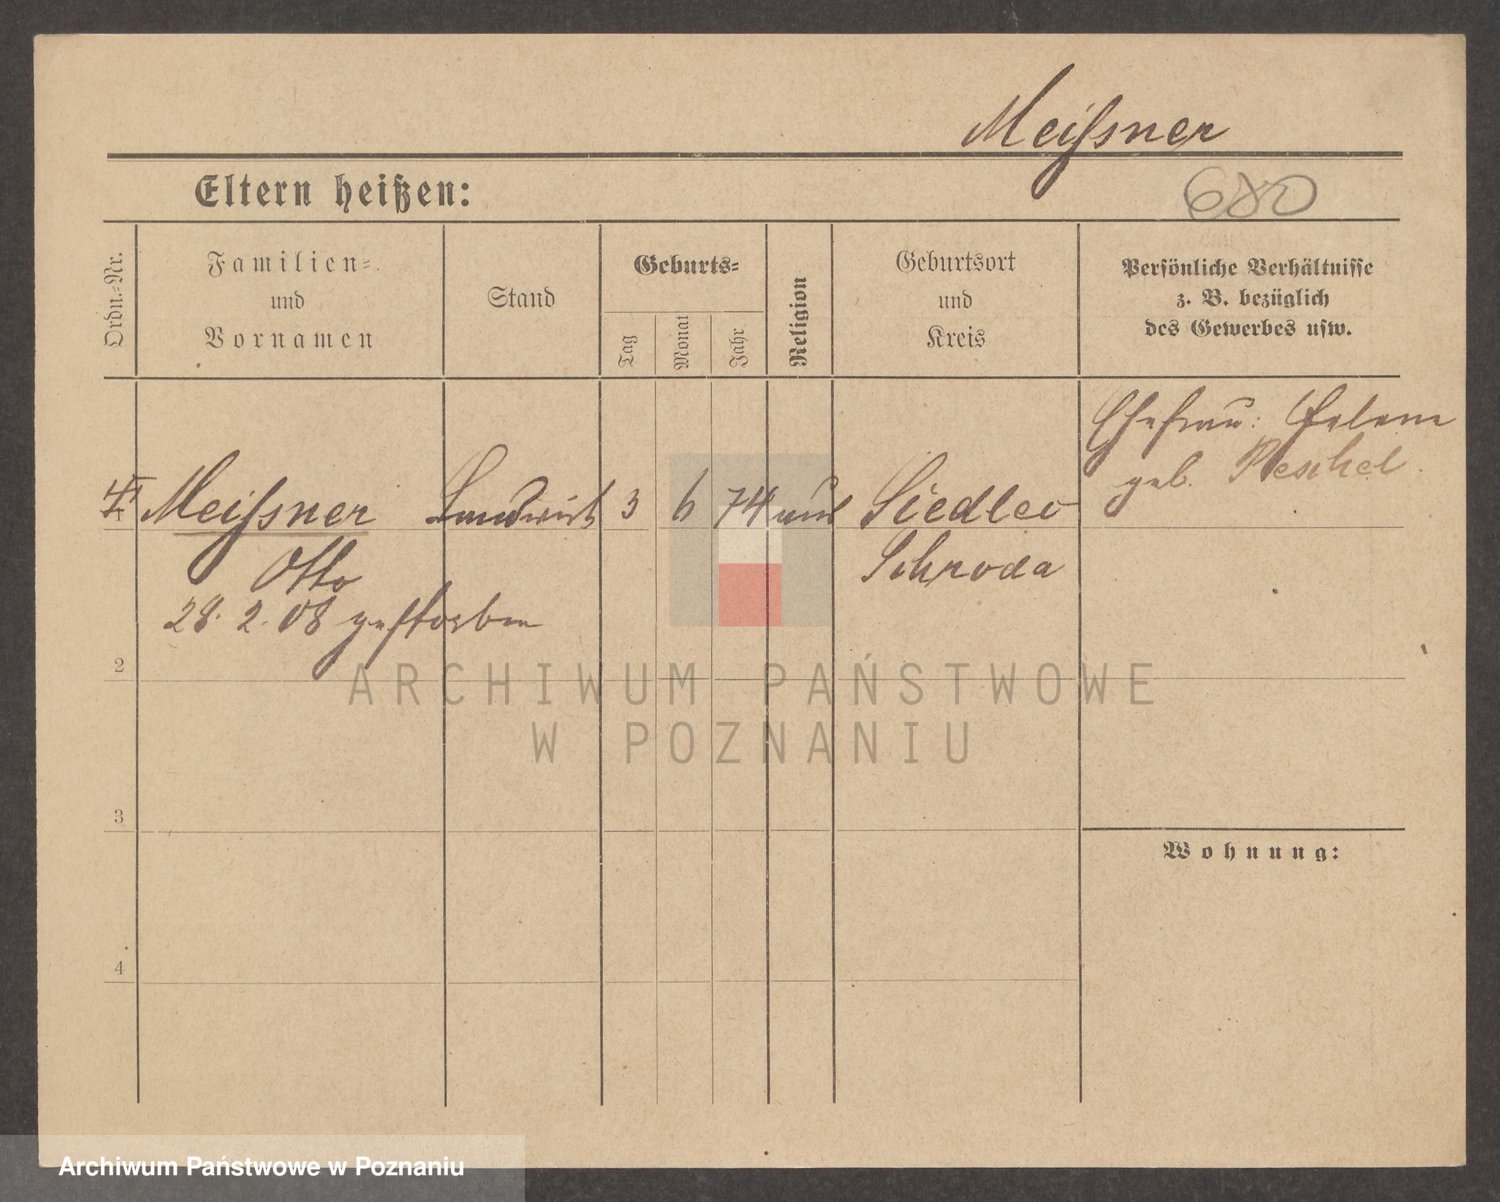 Meißner
Eltern heißen:
680
Ordn.-Nr.
Familien-
und
Vornamen
Stand
Geburts-
Tag
Monat
Jahr
Religion
Geburtsort
und
Kreis
Persönliche Verhältnisse
z. B. bezüglich
des Gewerbes usw.
Ehefrau: Helene
geb. Peschel
Meißner Landwirt 3 6 74 Siedlec
Otto Schroda
28. 2. 08 gestorben
2
3
4
Wohnung:
ARCHIWUM PAŃSTWOWE
W POZNANIU
Archiwum Państwowe w Poznaniu